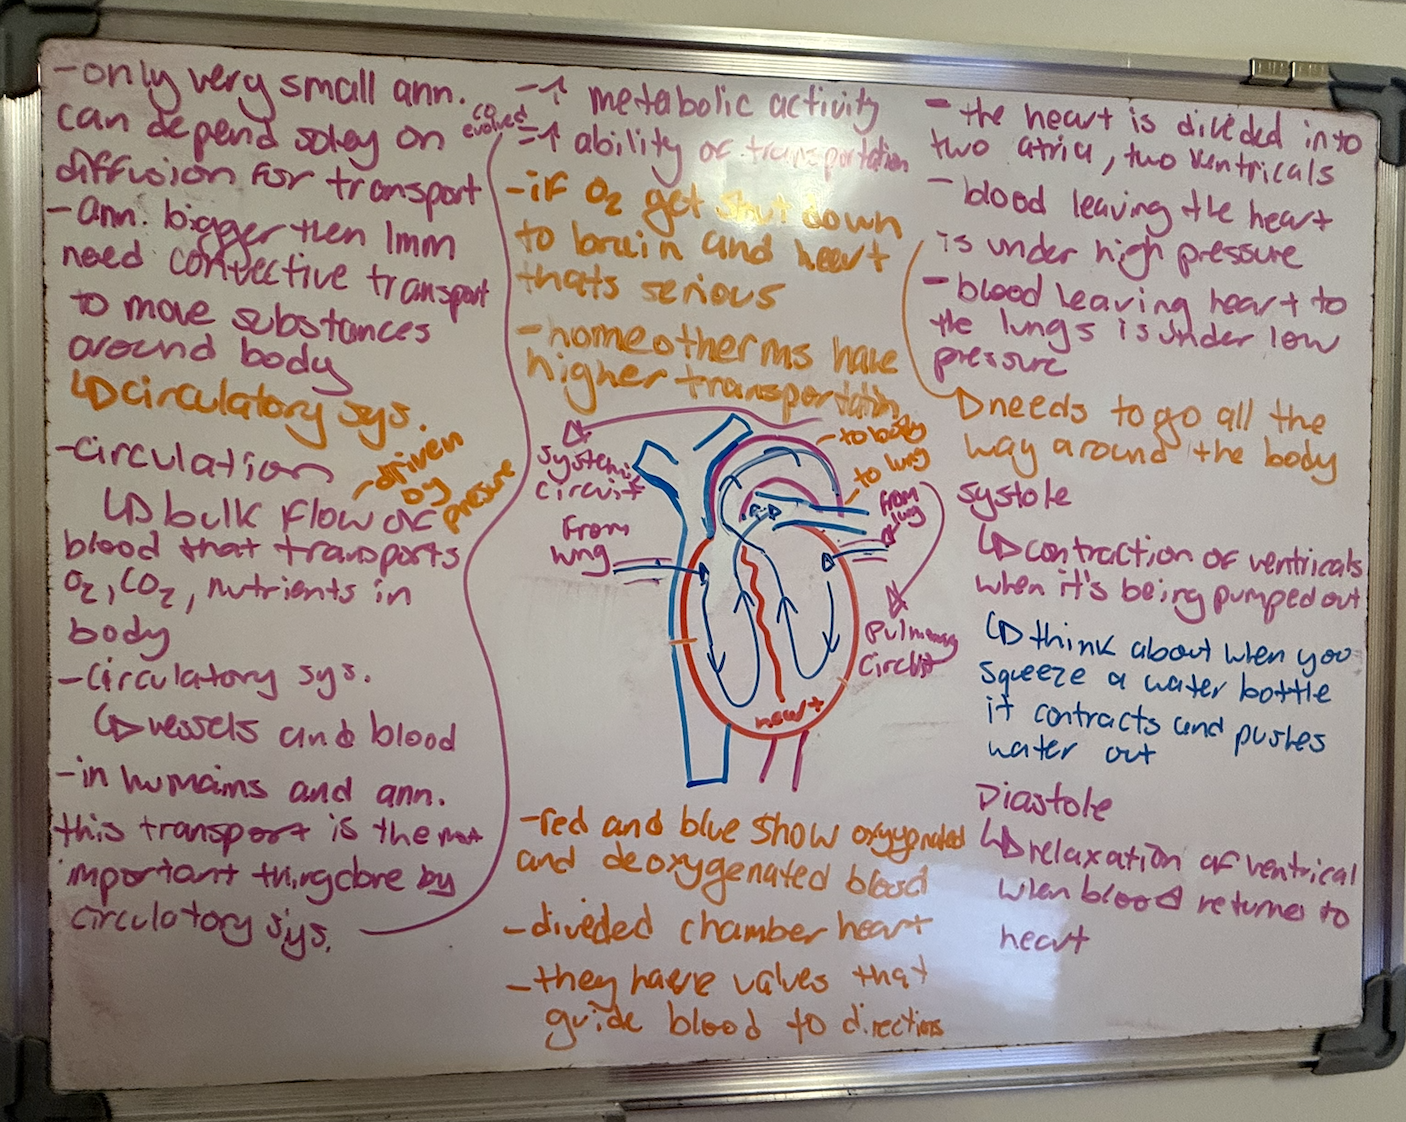 -only very small ann.
can depend soley on
diffusion for transport
-ann. bigger then 1mm
need convective transport
to move substances
around body
↳circulatory sys.
-circulation
-driven
by
presure
↳bulk flow of
blood that transports
O2, CO2, nutrients in
body
-circulatory sys.
↳vessels and blood
-in humains and ann.
this transport is the most
important thing done by
circulatory sys.
co
evolved
-↑ metabolic activity
-↑ ability of transportation
-if O2 get shut down
to brain and heart
thats serious
-homeotherms have
higher transportation
systemic
circuit
from
lung
-to body
-to lung
from
lung
pulmonary
circuit
heart
-red and blue show oxygenated
and deoxygenated blood
-diveded chamber heart
-they have valves that
guide blood to directions
-the heart is divided into
two atria, two ventricals
-blood leaving the heart
is under high pressure
-blood leaving heart to
the lungs is under low
pressure
needs to go all the
way around the body
systole
↳contraction of ventricals
when it's being pumped out
↳think about when you
squeeze a water bottle
it contracts and pushes
water out
Diastole
↳relaxation of ventrical
when blood returnes to
heart